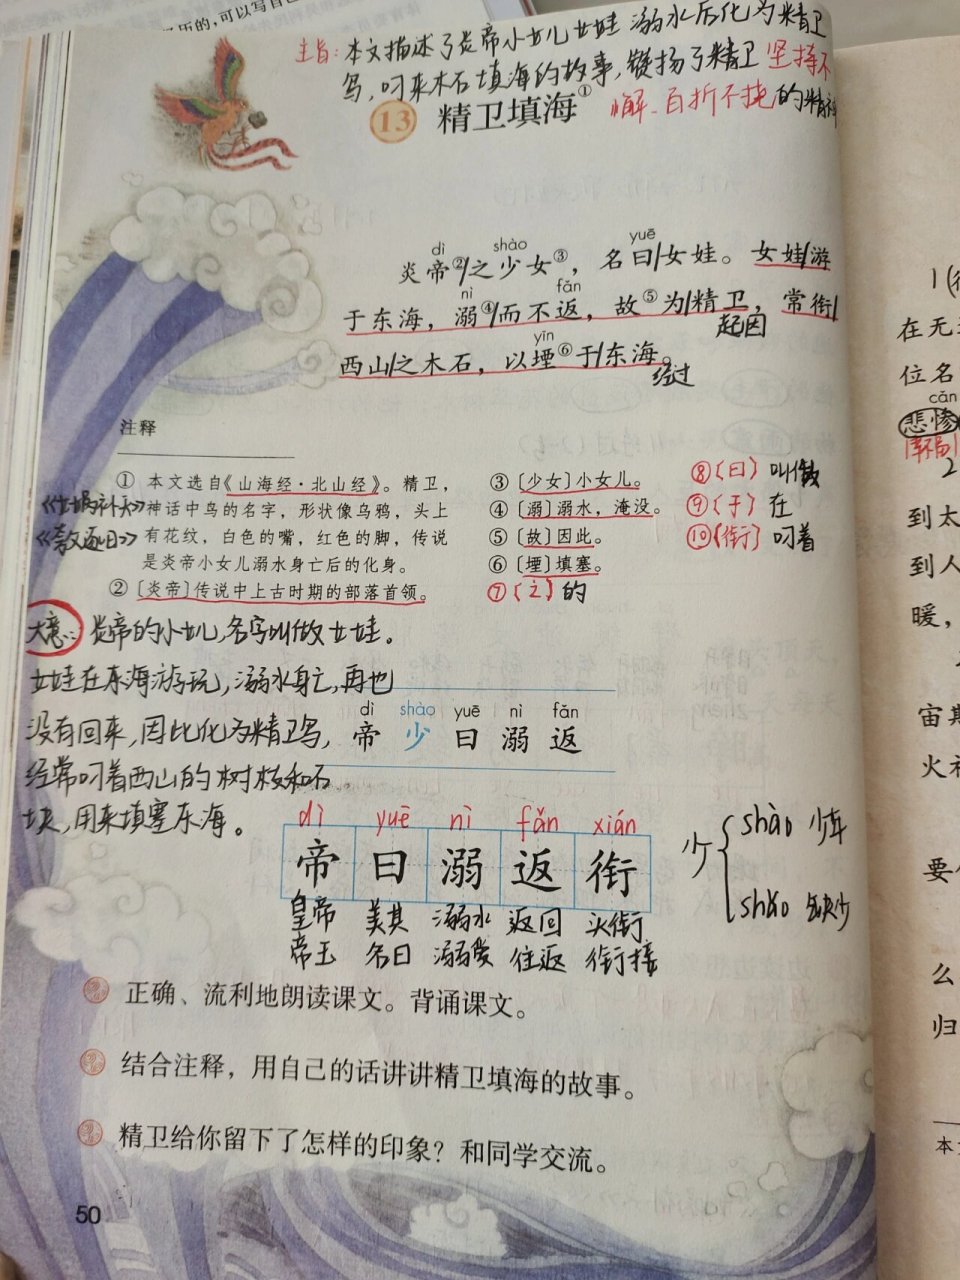 历的,可以写自己
主旨:本文描述了炎帝小女儿女娃溺水后化为精卫
鸟,叼来木石填海的故事,赞扬了精卫坚持不
懈、百折不挠的精神
13 精卫填海①
dì shào yuē
炎帝②/之少女③，名曰/女娃。女娃/游
nì fǎn
于东海，溺④/而不返，故⑤为/精卫，常衔/
起因
yīn
西山/之木石，以堙⑥于/东海。
经过
注释
① 本文选自《山海经·北山经》。精卫，
神话中鸟的名字，形状像乌鸦，头上
有花纹，白色的嘴，红色的脚，传说
是炎帝小女儿溺水身亡后的化身。
《女娲补天》
② 〔炎帝〕传说中上古时期的部落首领。
③ 〔少女〕小女儿。
④ 〔溺〕溺水，淹没。
⑤ 〔故〕因此。
⑥ 〔堙〕填塞。
⑦〔之〕的
⑧〔曰〕叫做
⑨〔于〕在
⑩〔衔〕叼着
大意: 炎帝的小女儿,名字叫做女娃。
女娃在东海游玩,溺水身亡,再也
没有回来,因此化为精卫鸟,
经常叼着西山的树枝和石
块,用来填塞东海。
dì shào yuē nì fǎn
帝 少 曰 溺 返
dì yuē nì fǎn xián
帝 曰 溺 返 衔
皇帝 美其 溺水 返回 头衔
帝王 名曰 溺爱 往返 衔接
少 shào 少年
shǎo 缺少
正确、流利地朗读课文。背诵课文。
结合注释，用自己的话讲讲精卫填海的故事。
精卫给你留下了怎样的印象？和同学交流。
50
1
在无
位名
cǎn
悲惨
2
到太
到人
暖，
宙斯
火
要
么
归
本